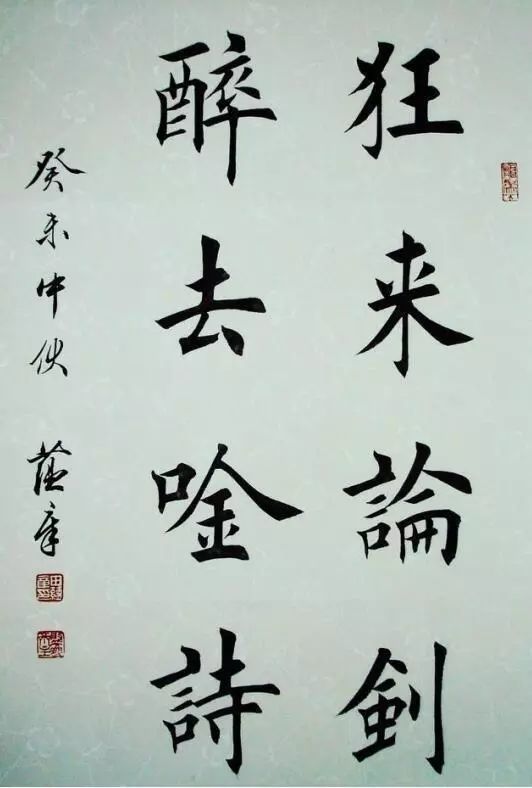 狂来論劍
醉去唫詩
癸未中伏 蕴章